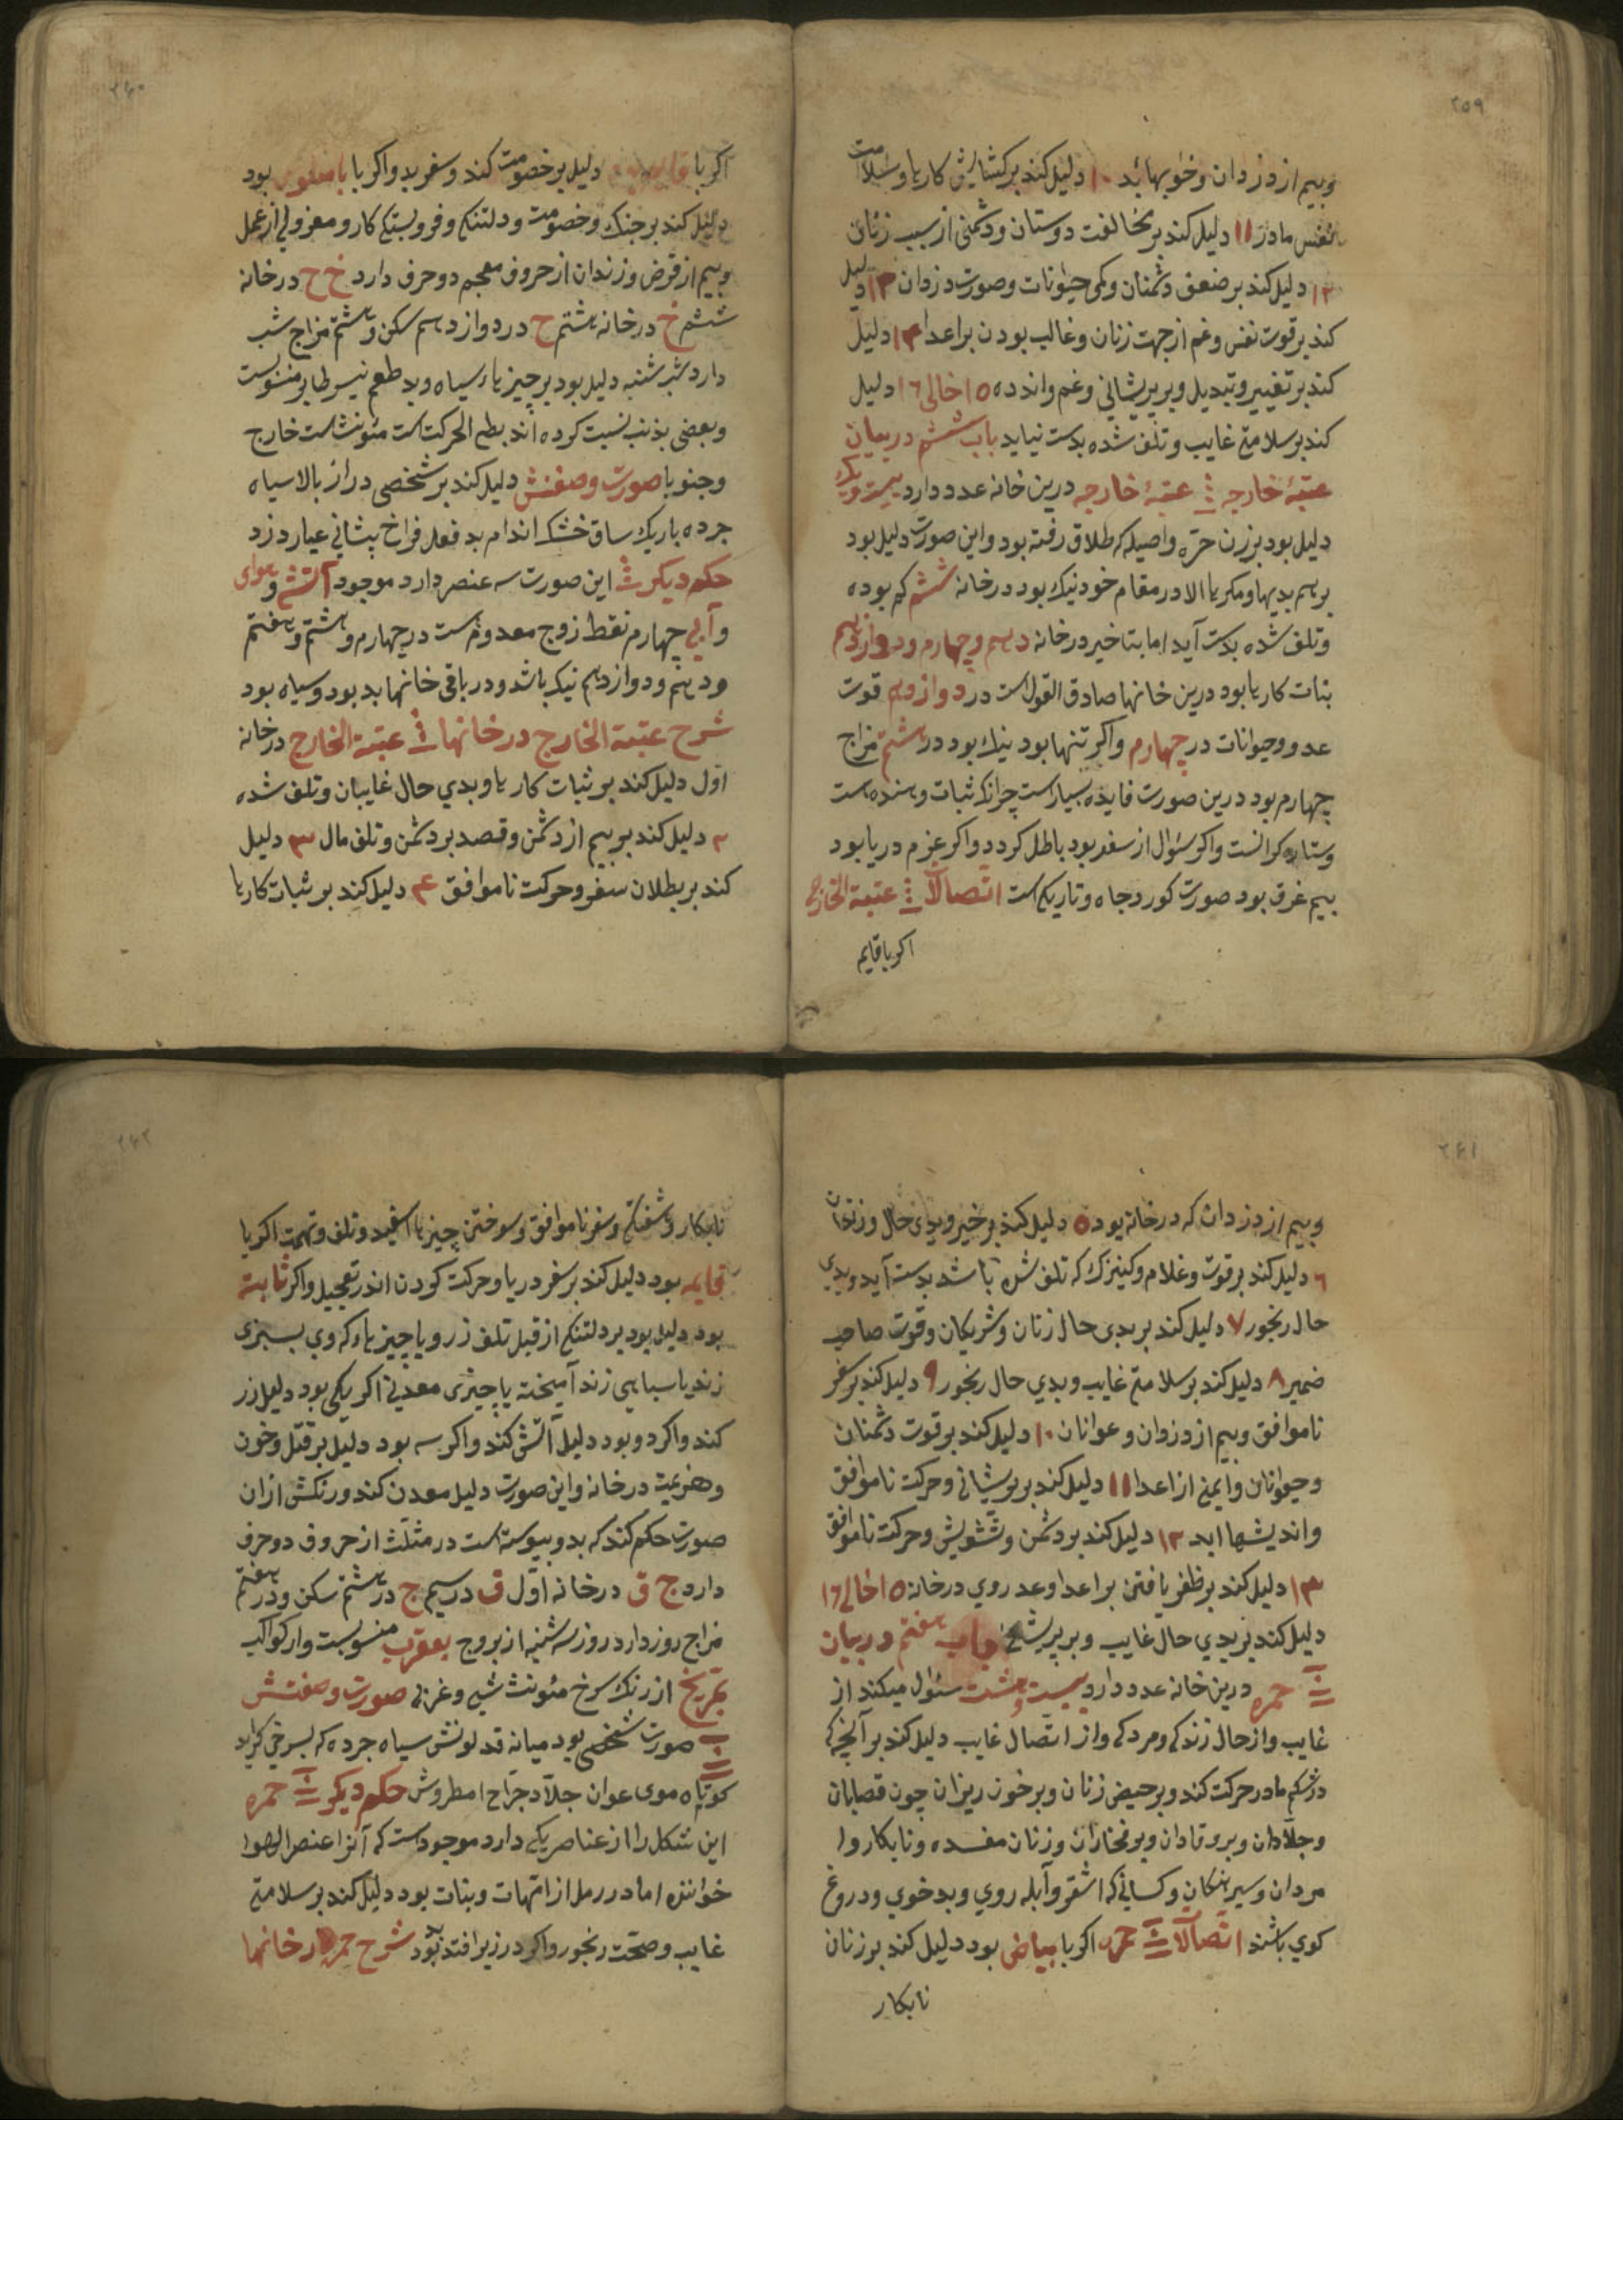 ٢٥٩
وبیم از دزدان وخوابهاء بد ١٠ دلیل کند بر کشایش کارها وسلامت
نفس مادر ١١ دلیل کند بر مخالفت دوستان ودشمنی از سبب زنان
١٢ دلیل کند بر ضعف دشمنان وکمی حیوانات وصورت دزدان ١٣ دلیل
کند بر قوت نفس وغم از جهت زنان وغالب بودن بر اعدا ١٤ دلیل
کند بر تغییر وتبدیل وبر پریشانی وغم واندوه ١٥ خالی ١٦ دلیل
کند بر سلامتی غایب وتلف شده بدست نیاید باب ششم در بیان
عتبهٔ خارجه عتبهٔ خارجه درین خانه عدد دارد بیست ویک
دلیل بود بر زن حره واصیله که طلاق رفته بود واین صورت دلیل بود
بر هم بدیها ومکرها الا در مقام خود نیک بود در خانه ششم کم بوده
وتلف شده بدست آید اما بتاخیر در خانه دهم وچهارم ودوازدهم
بنات کارها بود درین خانها صادق القول است در دوازدهم قوت
عدو وحیوانات در چهارم واکر تنها بود نیک بود در هشتم مزاج
چهارم بود درین صورت فایده بسیار است چرا که ثبات وسنده است
وستاره کرانست واکر سئوال از سفر بود باطل کردد واکر عزم دریا بود
بیم غرق بود صورت کور وجاه وتاریکی است اتصالات عتبة الخارج
اکر با قایم
٢٦٠
اکر با دلیل بر خصومت کند وسفر بد واکر با بود
دلیل کند بر جنک وخصومت ودلتنکی وفروبستکی کار ومعزولی از عمل
وبیم از قرض وزندان از حروف معجم دو حرف دارد خ ح در خانه
ششم خ در خانه هشتم ح در دوازدهم سکن وهشتم مزاج شب
دارد شب شنبه دلیل بود بر چیزهاء سیاه وبد طعم نیر طایر منسوبست
وبعضی بذنب نسبت کرده اند بطی الحرکت است مئونث است خارج
وجنوبا صورت وصفتش دلیل کند بر شخصی دراز بالا سیاه
جرده باریک ساق خشک اندام بد فعل فراخ پیشانی عیار دزد
حکم دیکر این صورت سه عنصر دارد موجود آتشی وهوای
وآبی چهارم نقط زوج معدوم است در چهارم وهشتم وهفتم
ودهم ودوازدهم نیک باشد ودر باقی خانها بد بود وسیاه بود
شرح عتبة الخارج در خانها عتبة الخارج در خانه
اول دلیل کند بر ثبات کارها وبدی حال غایبان وتلف شده
٢ دلیل کند بر بیم از دشمن وقصد بر دشمن وتلف مال ٣ دلیل
کند بر بطلان سفر وحرکت ناموافق ٤ دلیل کند بر ثبات کارها
٢٦١
وبیم از دزدان که در خانه بود ٥ دلیل کند بر خیر وبدی حال وزندان
٦ دلیل کند بر قوت وغلام وکنیزک که تلف شده باشد بدست آید وبدی
حال رنجور ٧ دلیل کند بر بدی حال زنان وشریکان وقوت صاحب
ضمیر ٨ دلیل کند بر سلامتی غایب وبدی حال رنجور ٩ دلیل کند بر سفر
ناموافق وبیم از دزدان وعوانان ١٠ دلیل کند بر قوت دشمنان
وحیوانان وایمنی از اعدا ١١ دلیل کند بر پریشانی وحرکت ناموافق
واندیشها ابد ١٢ دلیل کند بر دشمن وتشویش وحرکت ناموافق
١٣ دلیل کند بر ظفر یافتن بر اعدا وعدروی در خانه ١٥ خالی ١٦
دلیل کند بر بدی حال غایب وبر پریشانی باب هفتم در بیان
حمره درین خانه عدد دارد بیست وهشت سئوال میکند از
غایب واز حال زندکی ومردکی واز اتصال غایب دلیل کند بر آنچه که
در شکم مادر حرکت کند وبر حیض زنان وبر خون ریزان چون قصابان
وجلادان وبروتادان وبونختاران وزنان مفسده ونابکار وا
مردان وسرهنکان وکسانی که اشقر وآبله روی وبد خوی ودروغ
کوی باشند اتصالات حمره اکر با بیاض بود دلیل کند بر زنان
نابکار
٢٦٢
نابکار وشفتکی وسفر ناموافق وسوختن چیزها اسفید وتلف وتهمت اکر با
قایمه بود دلیل کند بر سفر دریا وحرکت کردن اندر تعجیل واکر ثابته
بود دلیل بود بر دلتنکی از قبل تلف زر ویا چیزهاء که وی بسبزی
زند یا سیاهی زند آمیخته یا چیزی معدنی اکر یکی بود دلیل زر
کند واکر دو بود دلیل آتش کند واکر سه بود دلیل بر قتل وخون
وهزیمت در خانه واین صورت دلیل معدن کند ورنکش از ان
صورت حکم کند که بدو پیوسته است در مثلث از حروف دو حرف
دارد ج ق در خانه اول ق در سیم ج در هشتم سکن ودر هفتم
مزاج روز دارد روز سه شنبه از بروج بعقرب منسوبست واز کواکب
بمریخ از رنک سرخ مئونث شبی وغربی صورت وصفتش
صورت شخصی بود میانه قد لونش سیاه جرده که بسرخی کراید
کوتاه موی عوان جلاد جراح امطروش حکم دیکر حمره
این شکل را از عناصر یکی دارد موجود است که آنرا عنصر الهوا
خوانند اما در رمل از امتهات وبنات بود دلیل کند بر سلامتی
غایب وصحت رنجور واکر در زیر افتد بد بود شرح حمره در خانها